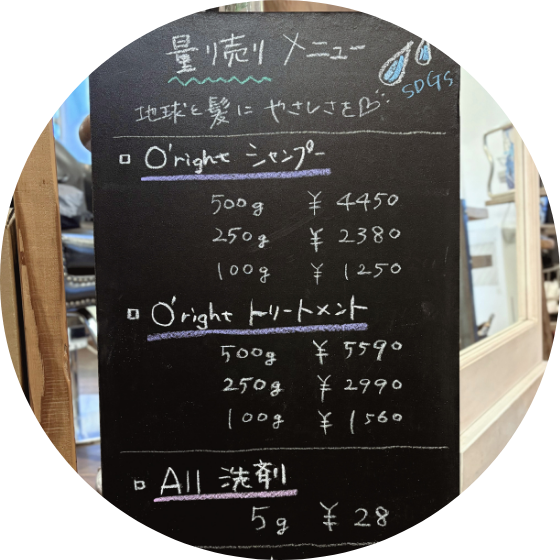 量り売り メニュー
SDGs
地球と髪に やさしさを
O'right シャンプー
500g ¥ 4450
250g ¥ 2380
100g ¥ 1250
O'right トリートメント
500g ¥ 5590
250g ¥ 2990
100g ¥ 1560
All 洗剤
5g ¥ 28